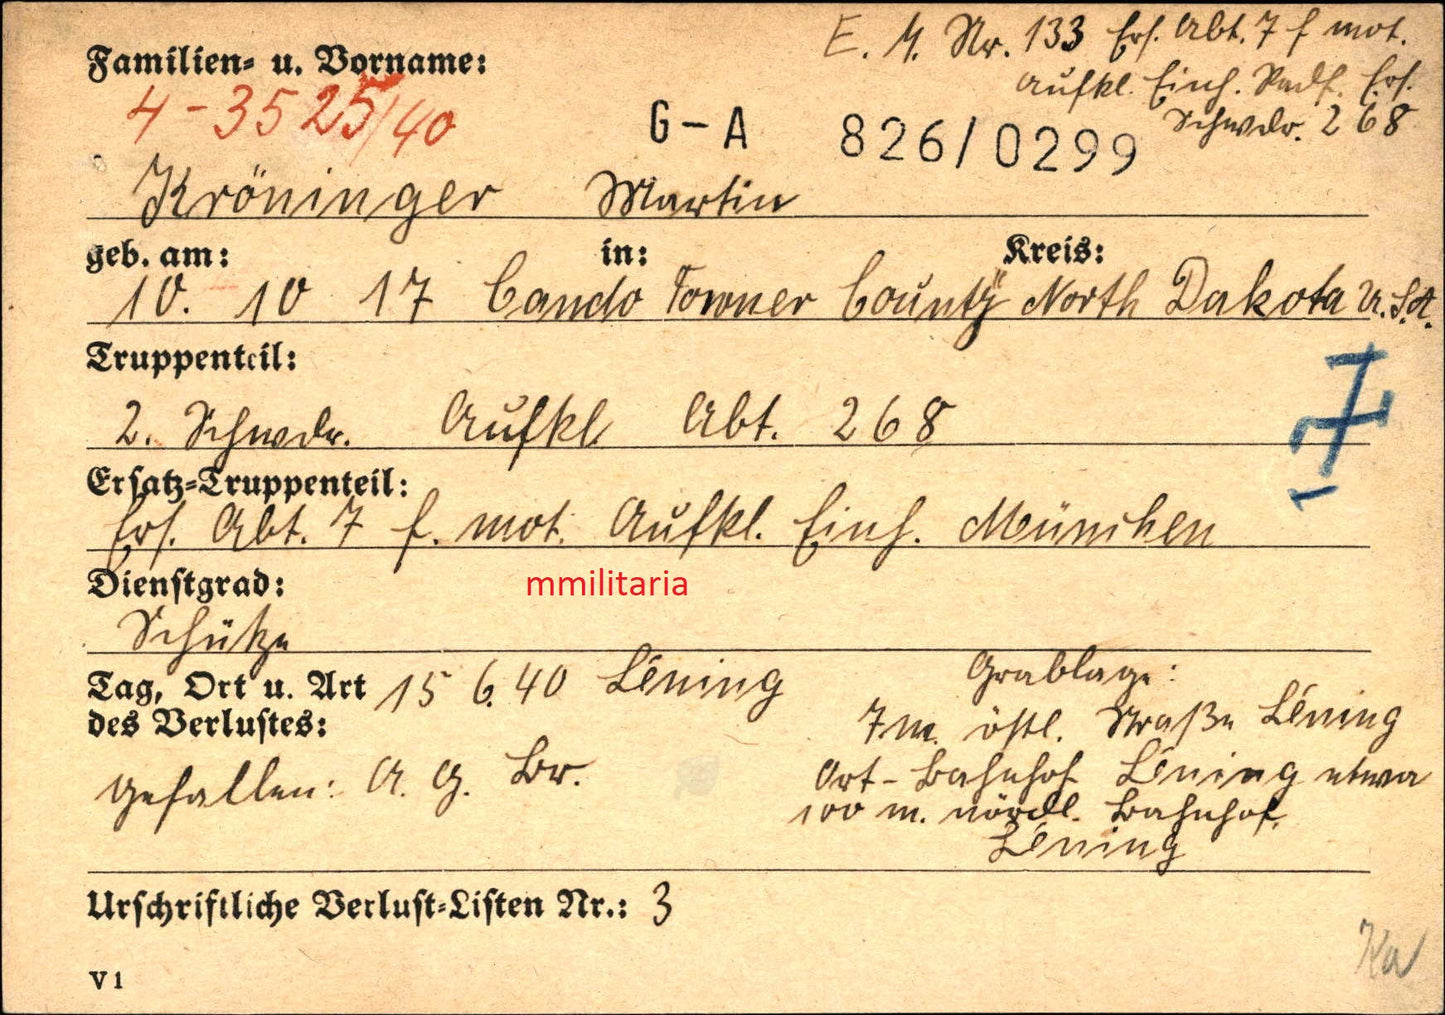 E. M. Nr. 133 Ers. Abt. 7 f mot.
Aufkl. Einh. Radf. Ers.
Schwdr. 268
Familien- u. Vorname:
4-3525/40
G-A 826/0299
Kröninger Martin
geb. am: in: Kreis:
10. 10 17 Cando Towner County North Dakota U.S.A.
Truppenteil:
2. Schwdr. Aufkl Abt. 268
Ersatz-Truppenteil:
Ers. Abt. 7 f. mot. Aufkl. Einh. München
Dienstgrad:
mmilitaria
Schütze
Tag, Ort u. Art
des Verlustes:
15 6. 40 Léning
gefallen: A. G. Br.
Grablage:
7 m. östl. Straße Léning
Ort-Bahnhof Léning etwa
100 m. nördl. Bahnhof
Léning
Urschriftliche Verlust-Listen Nr.: 3
V 1